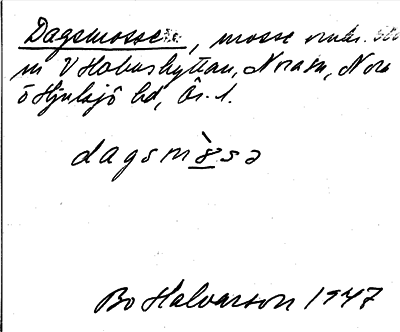 Dagsmosse, mosse omkr. 500
m V Hobornshyttan, Nora sn, Nora
o Hjulsjö bd, Ör. l.
dagsmòsə
Bo Halvarson 1947